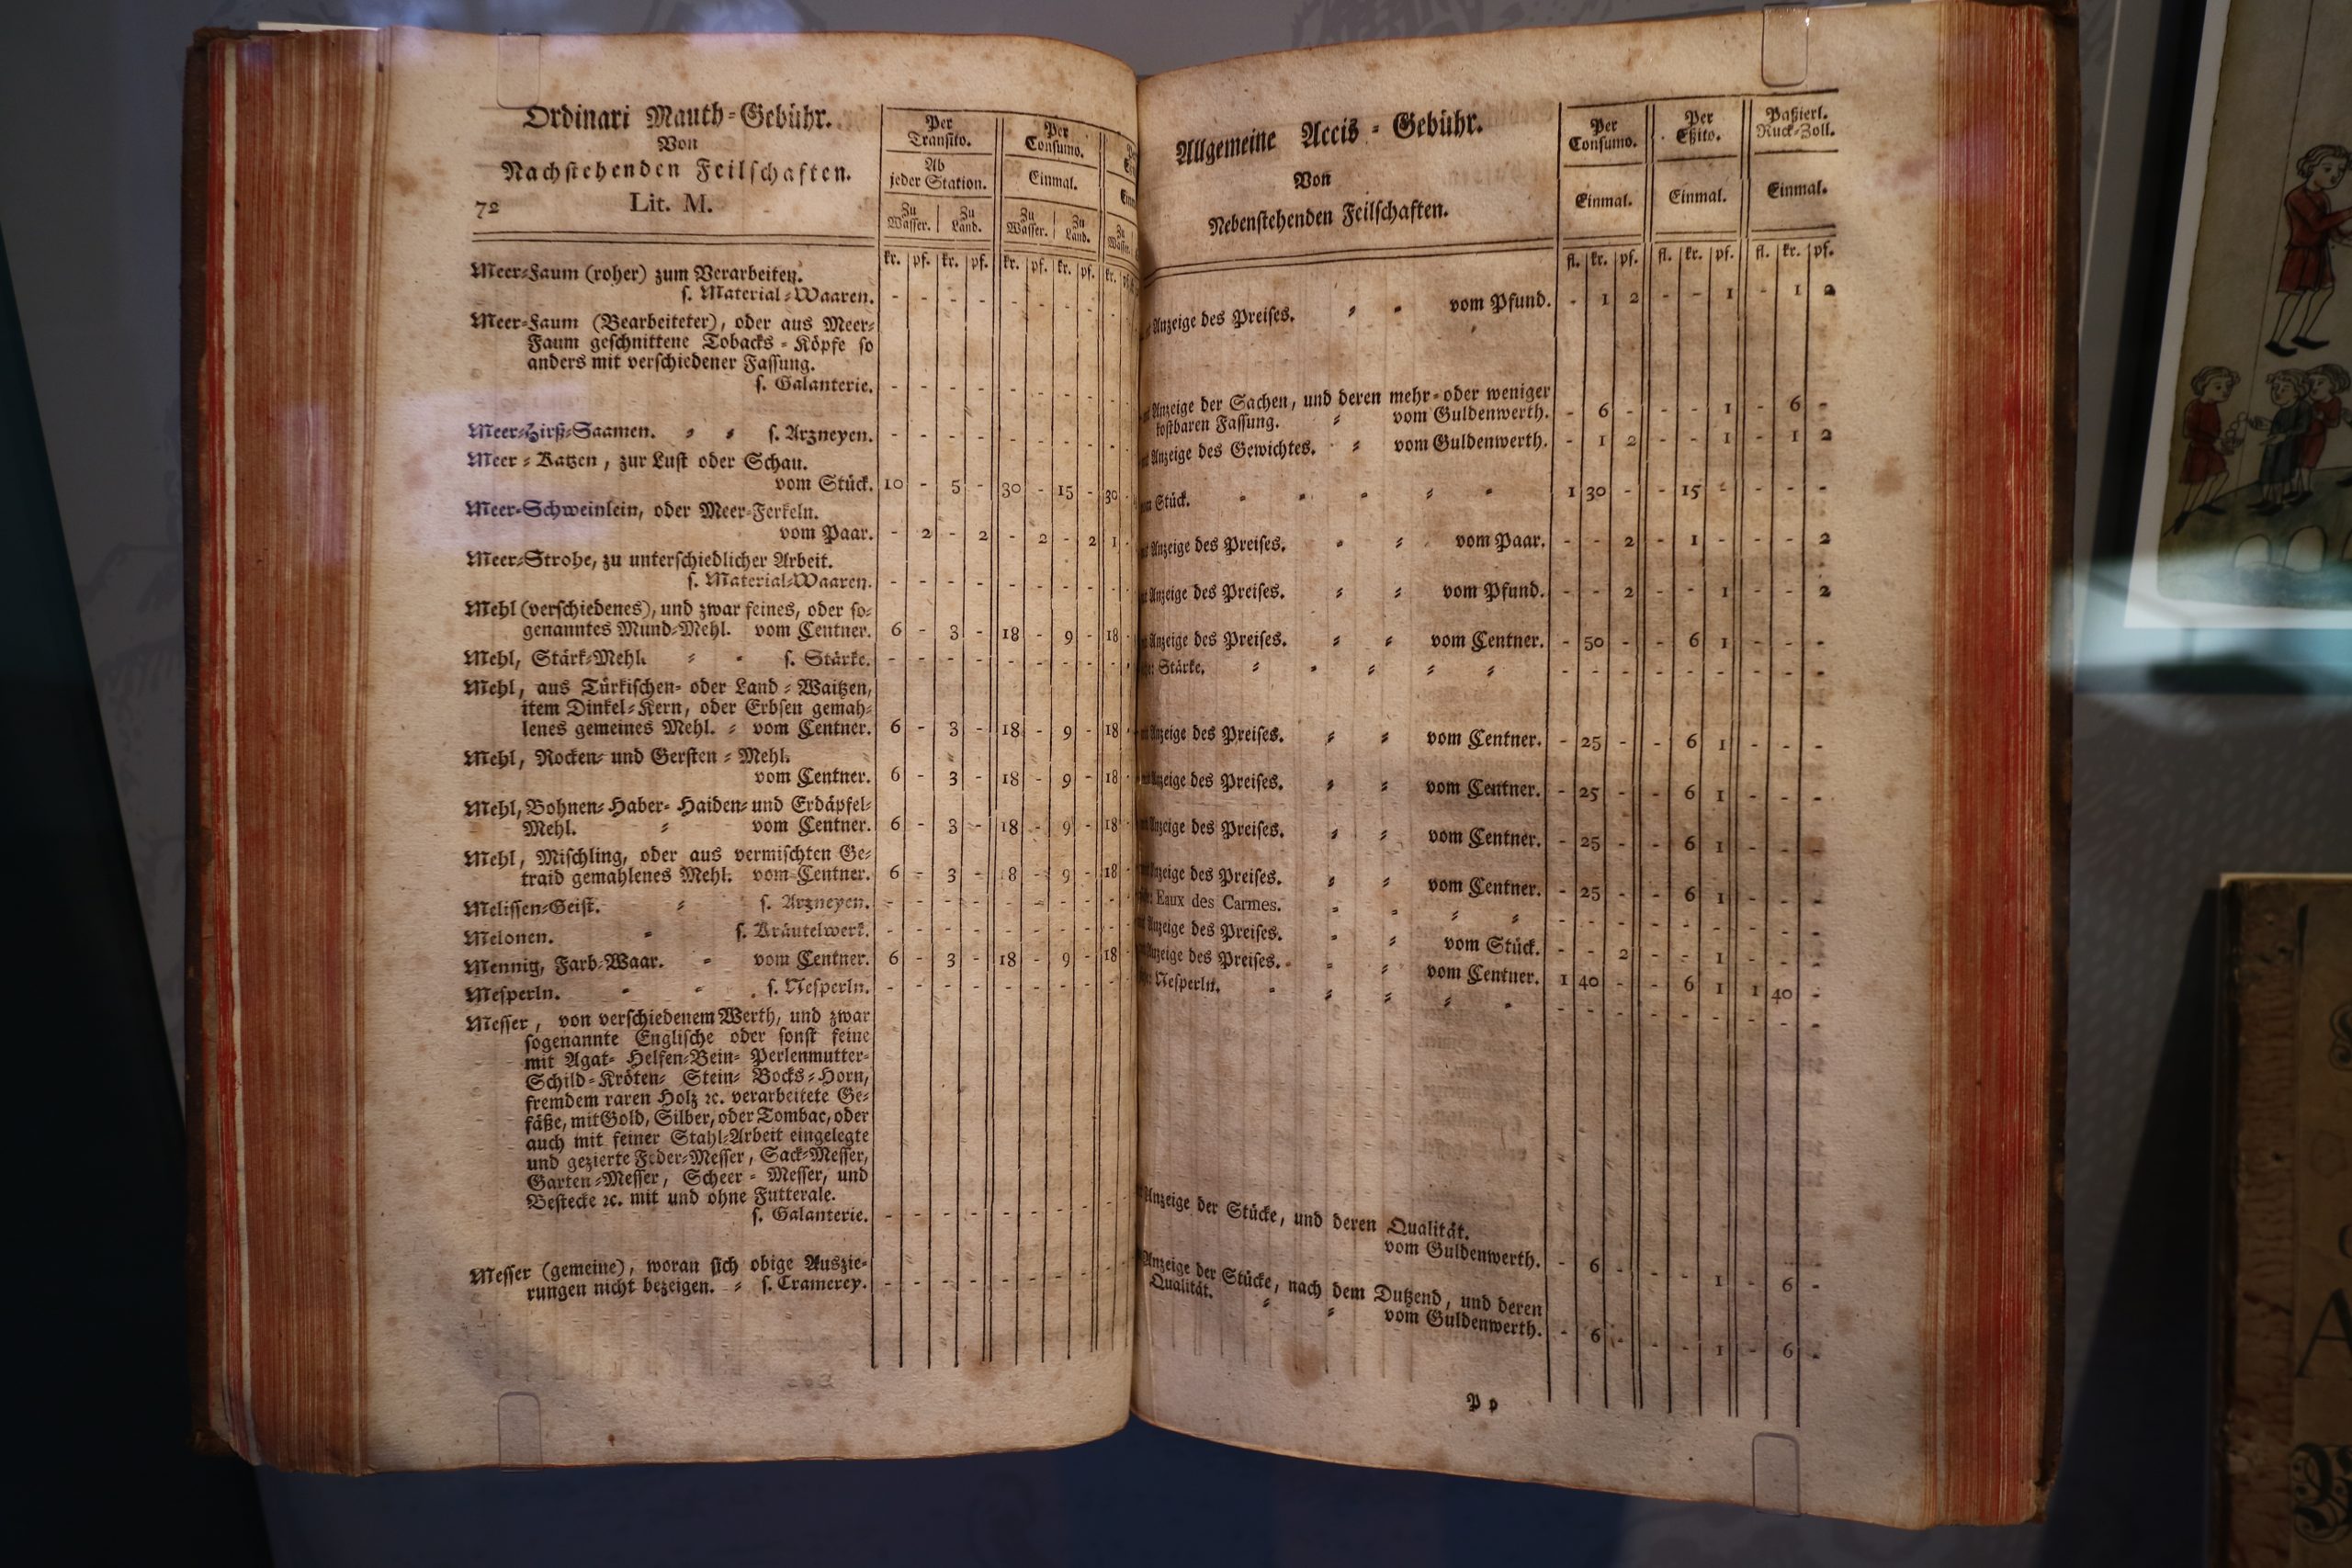 Ordinari Mauth-Gebühr.
Von
Nachstehenden Feilschaften.
72 Lit. M.
Per Transito. Per Consumo.
Ab jeder Station. Einmal.
Zu Wasser. Zu Land. Zu Wasser. Zu Land. Zu
kr. pf. kr. pf. kr. pf. kr. pf. kr.
Meer-Faum (roher) zum Verarbeiten.
s. Material-Waaren. - - - - - - - -
Meer-Faum (Bearbeiteter), oder aus Meer-
Faum geschnittene Tobacks-Köpfe so
anders mit verschiedener Fassung.
s. Galanterie. - - - - - - - -
Meer-Hirß-Saamen. s. Arzneyen. - - - - - - - -
Meer-Katzen, zur Lust oder Schau.
vom Stück. 10 - 5 - 30 - 15 - 30
Meer-Schweinlein, oder Meer-Ferkeln.
vom Paar. - 2 - 2 - 2 - 2 1
Meer-Strohe, zu unterschiedlicher Arbeit.
s. Material-Waaren. - - - - - - - -
Mehl (verschiedenes), und zwar feines, oder so-
genanntes Mund-Mehl. vom Centner. 6 - 3 - 18 - 9 - 18
Mehl, Stärk-Mehl. s. Stärke. - - - - - - - -
Mehl, aus Türkischen- oder Land-Waitzen,
item Dinkel-Kern, oder Erbsen gemah-
lenes gemeines Mehl. vom Centner. 6 - 3 - 18 - 9 - 18
Mehl, Rocken- und Gersten-Mehl.
vom Centner. 6 - 3 - 18 - 9 - 18
Mehl, Bohnen- Haber- Haiden- und Erdäpfel-
Mehl. vom Centner. 6 - 3 - 18 - 9 - 18
Mehl, Mischling, oder aus vermischten Ge-
traid gemahlenes Mehl. vom Centner. 6 - 3 - 18 - 9 - 18
Melissen-Geist. s. Arzneyen. - - - - - - - -
Melonen. s. Kräutelwerk. - - - - - - - -
Mennig, Farb-Waar. vom Centner. 6 - 3 - 18 - 9 - 18
Mesperln. s. Nesperln. - - - - - - - -
Messer, von verschiedenem Werth, und zwar
sogenannte Englische oder sonst feine
mit Agat- Helfen-Bein- Perlenmutter-
Schild-Kröten- Stein- Bocks-Horn,
fremdem raren Holz ꝛc. verarbeitete Ge-
fäße, mit Gold, Silber, oder Tombac, oder
auch mit feiner Stahl-Arbeit eingelegte
und gezierte Feder-Messer, Sack-Messer,
Garten-Messer, Scheer-Messer, und
Bestecke ꝛc. mit und ohne Futterale.
s. Galanterie. - - - - - - - -
Messer (gemeine), woran sich obige Auszie-
rungen nicht bezeigen. s. Cramerey. - - - - - - - -
Allgemeine Accis-Gebühr.
Von
Nebenstehenden Feilschaften.
Per Consumo. Per Eßito. Paßierl. Ruck-Zoll.
Einmal. Einmal. Einmal.
fl. kr. pf. fl. kr. pf. fl. kr. pf.
Anzeige des Preises. vom Pfund. - 1 2 - - 1 - 1 2
Anzeige der Sachen, und deren mehr- oder weniger
kostbaren Fassung. vom Guldenwerth. - 6 - - - 1 - 6 -
Anzeige des Gewichtes. vom Guldenwerth. - 1 2 - - 1 - 1 2
Stück. 1 30 - - 15 - - - -
Anzeige des Preises. vom Paar. - - 2 - 1 - - - 2
Anzeige des Preises. vom Pfund. - - 2 - - 1 - - 2
Anzeige des Preises. vom Centner. - 50 - - 6 1 - - -
Stärke. - - - - - - - - -
Anzeige des Preises. vom Centner. - 25 - - 6 1 - - -
Anzeige des Preises. vom Centner. - 25 - - 6 1 - - -
Anzeige des Preises. vom Centner. - 25 - - 6 1 - - -
Anzeige des Preises. vom Centner. - 25 - - 6 1 - - -
Eaux des Carmes. - - - - - - - - -
Anzeige des Preises. vom Stück. - - 2 - - 1 - - -
Anzeige des Preises. vom Centner. 1 40 - - 6 1 1 40 -
Nesperln. - - - - - - - - -
Anzeige der Stücke, und deren Qualität.
vom Guldenwerth. - 6 - - - 1 - 6 -
Anzeige der Stücke, nach dem Dutzend, und deren
Qualität. vom Guldenwerth. - 6 - - - 1 - 6 -
P p